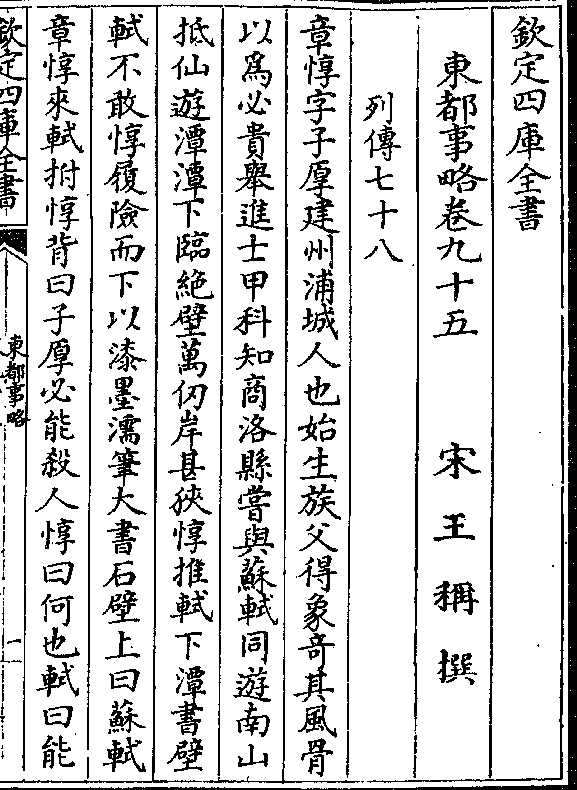 欽定四庫全書
東都事略卷九十五　宋　王　稱　撰
列傳七十八
章惇字子厚建州浦城人也始生族父得象竒其風骨
以為必貴舉進士甲科知商洛縣嘗與蘇軾同遊南山
抵仙遊潭潭下臨絶壁萬仞岸甚狹惇推軾下潭書壁
軾不敢惇履險而下以漆墨濡筆大書石壁上曰蘇軾
章惇來軾拊惇背曰子厚必能殺人惇曰何也軾曰能
欽定四庫全書
東都事略
一